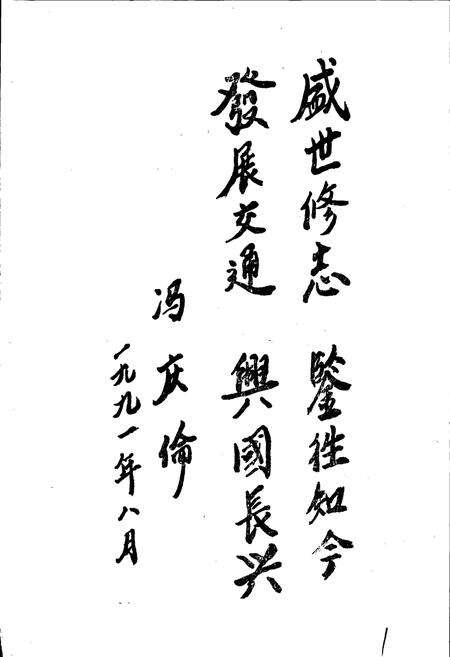 盛世修志 鑒往知今
發展交通 興國長兴
冯庆倫
一九九一年八月